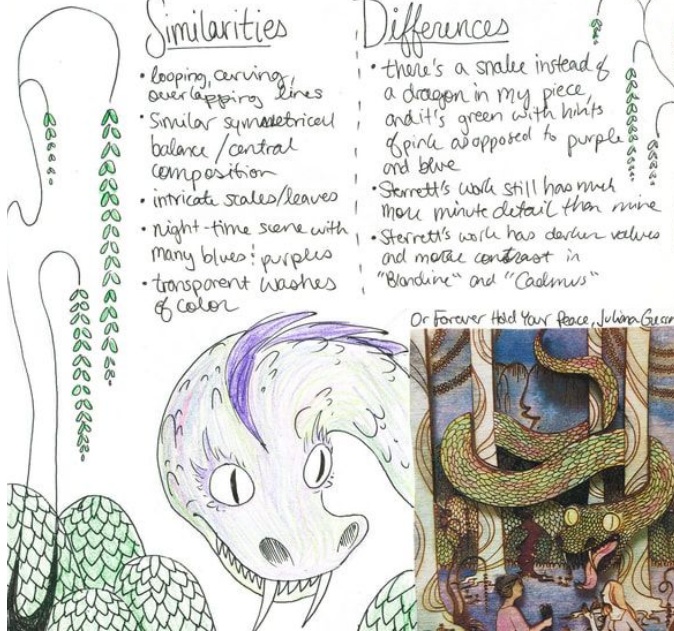 Similarities
• looping, curving,
overlapping lines
• Similar symmetrical
balance / central
composition
• intricate scales/leaves
• night-time scene with
many blues & purples
• transparent washes
of color
Differences
• there's a snake instead of
a dragon in my piece,
and it's green with hints
of pink as opposed to purple
and blue
• Sterrett's work still has much
more minute detail than mine
• Sterrett's work has darker values
and more contrast in
"Blondine" and "Cadmus"
Or Forever Hold Your Peace, Juliana